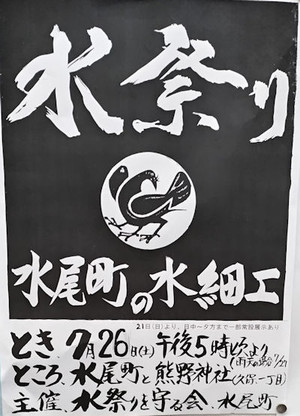 水祭り
水尾町の水細工
21日(日)より、日中～夕方まで一部常設展示あり
とき 7月26日(土)午後5時ごろより
(雨天の場合7/27)
ところ 水尾町と熊野神社
(久保一丁目)
主催 水祭りを守る会、水尾町